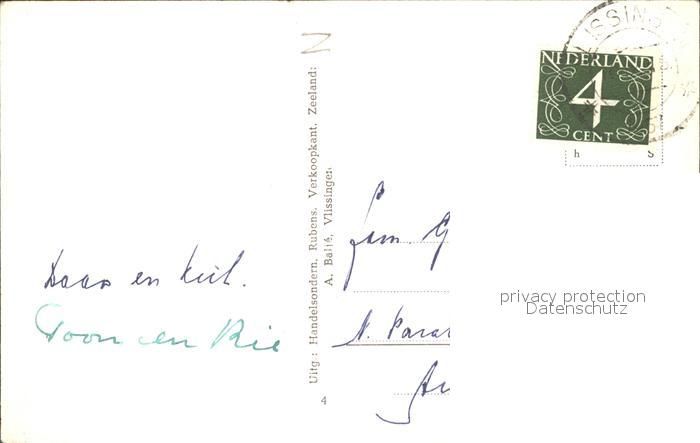 Daas en Riet.
Toon en Rie
Uitg.: Handelsondern. Rubens. Verkoopkant. Zeeland:
A. Baljé, Vlissingen
4
N
VLISSING
NEDERLAND
4
CENT
h s
Fam. G
N. Parar
privacy protection
Datenschutz